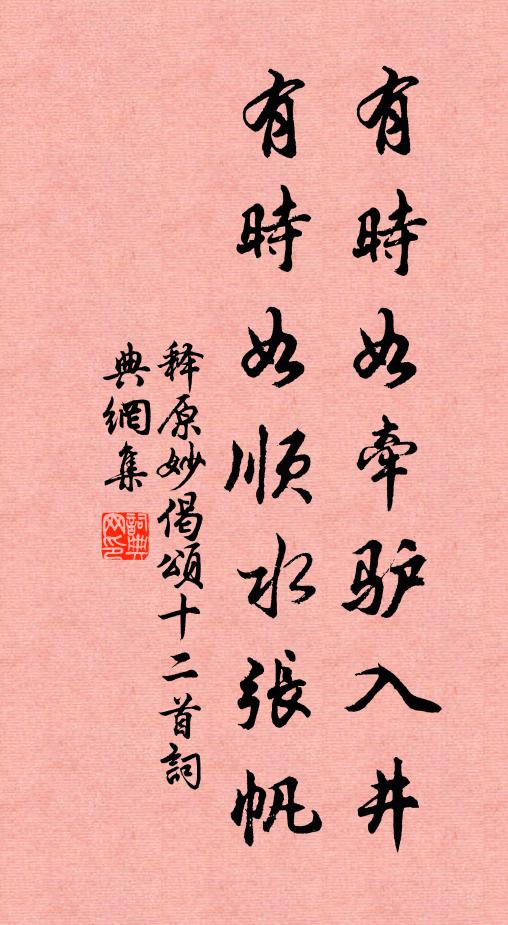 有時如牽驴入井
有時如順水張帆
释原妙偈頌十二首詞
典網集
詞典網印